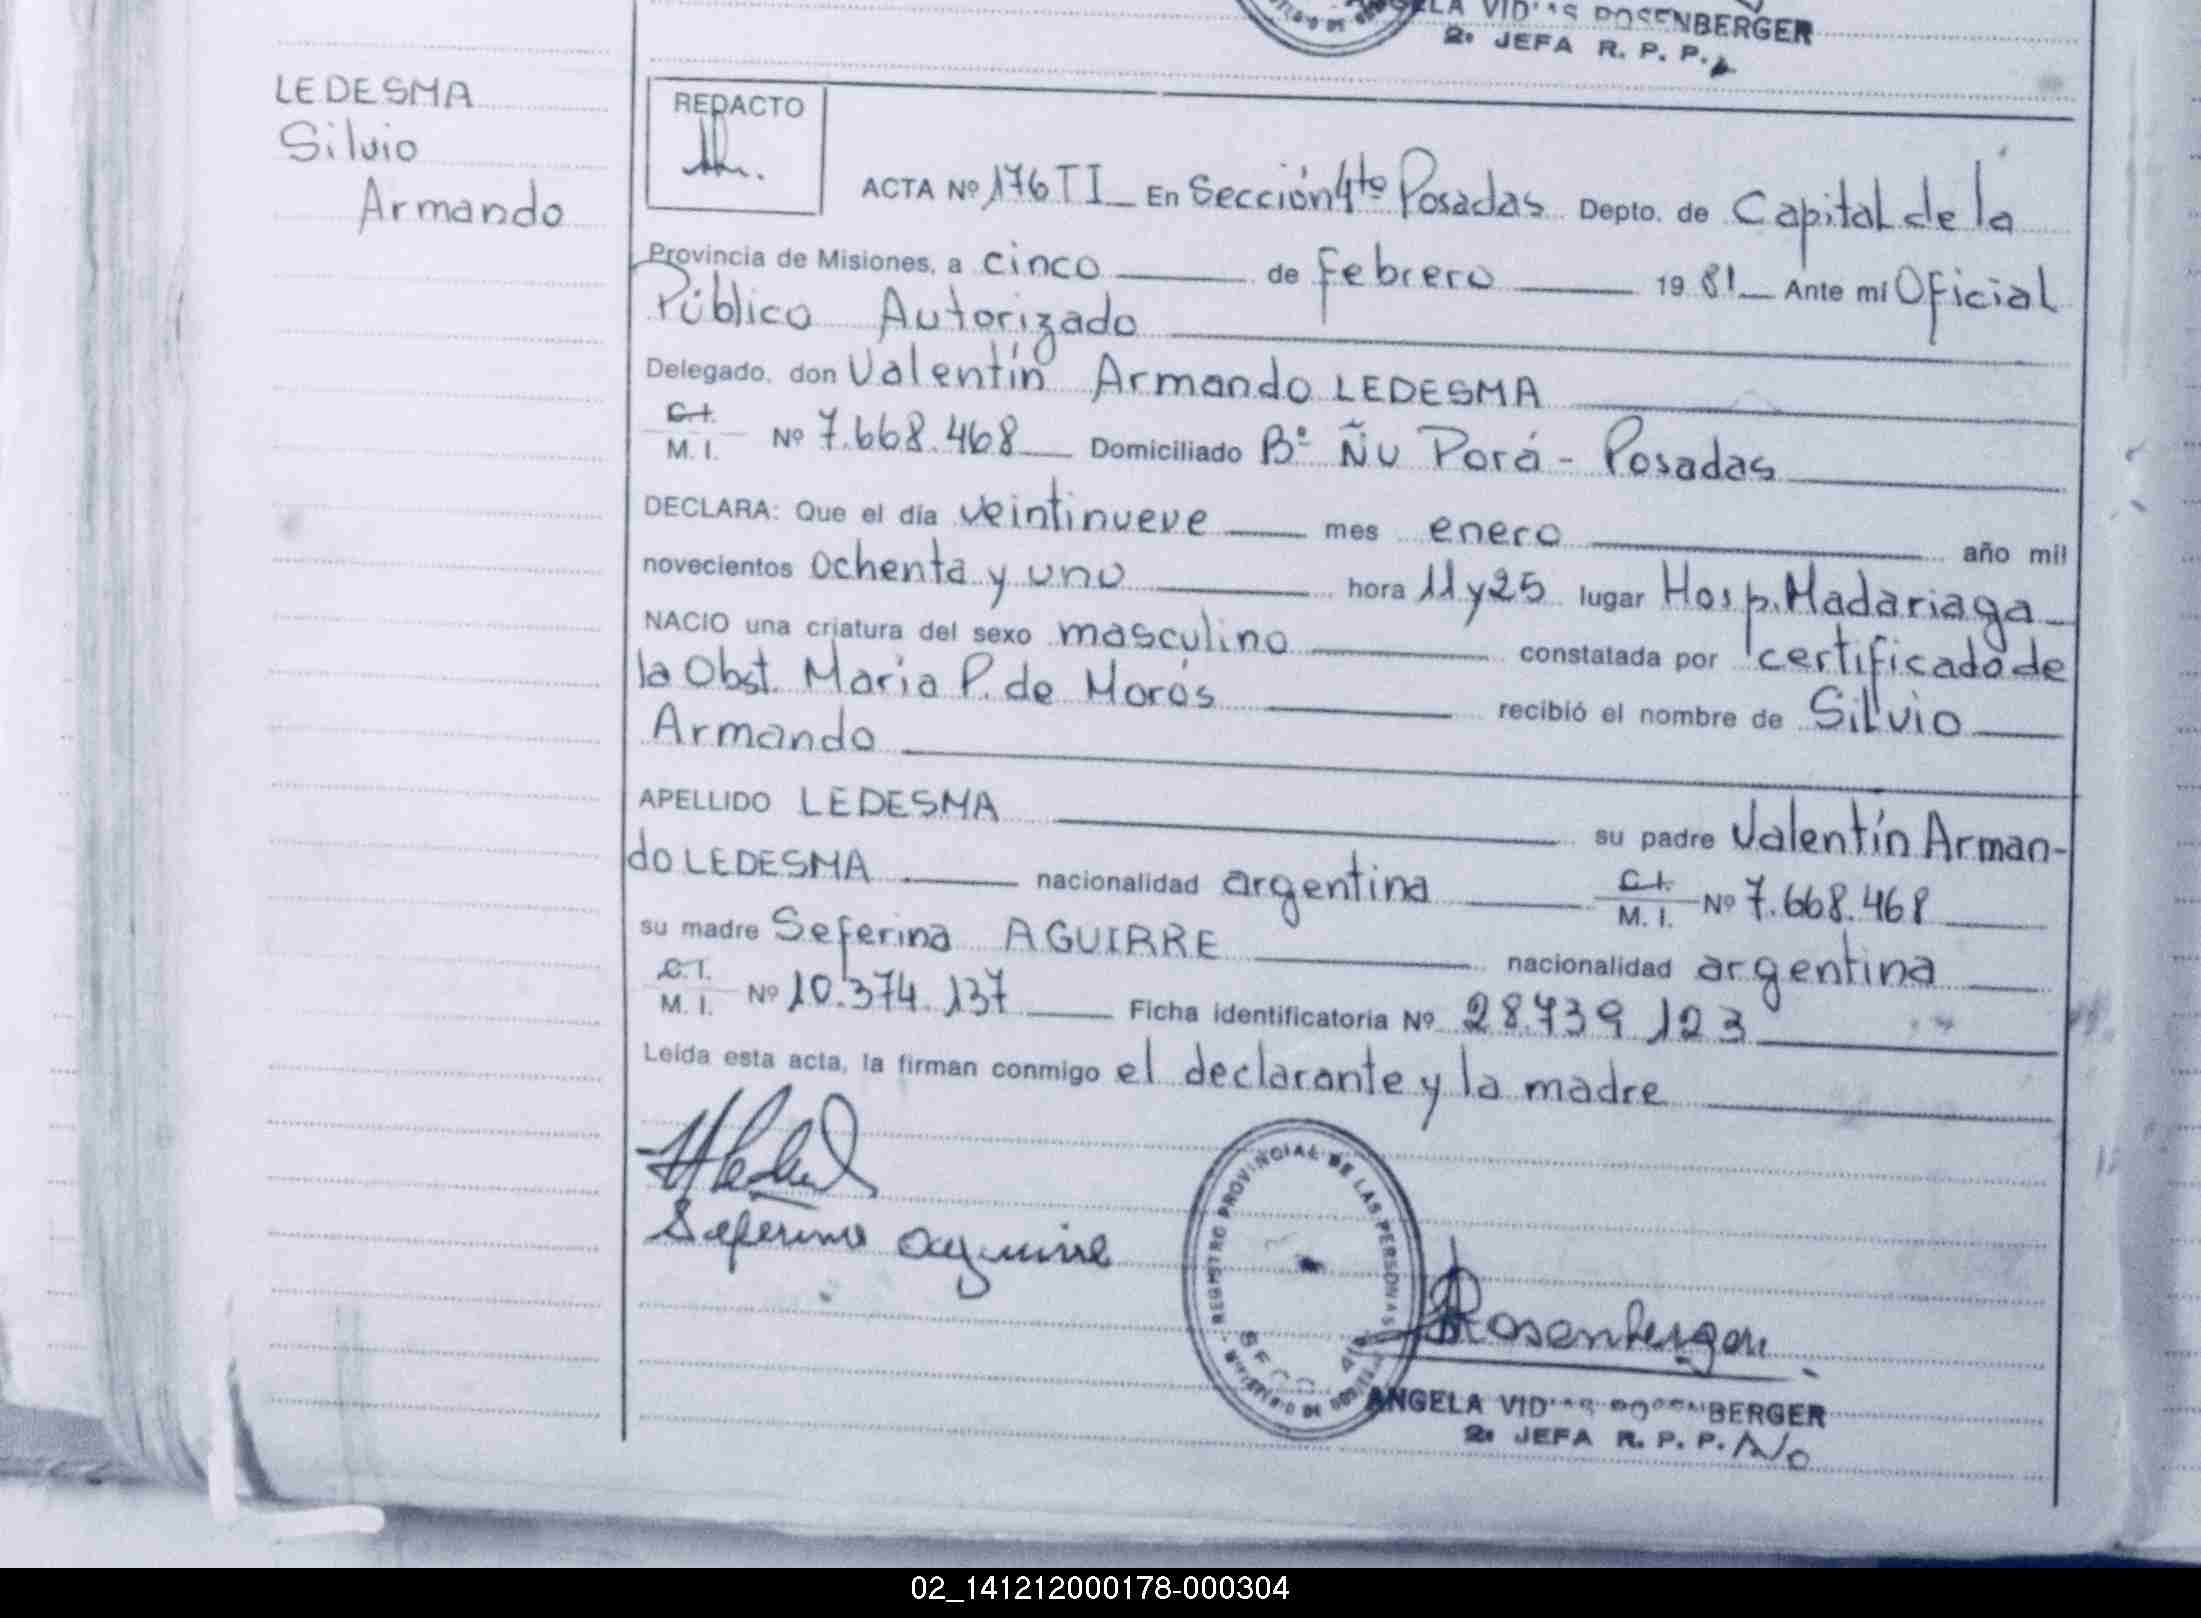 ANGELA VIDAS ROSENBERGER
2ª JEFA R. P. P.
LEDESMA
Silvio
Armando
REDACTO
ACTA Nº 176 TI En Sección 4tº Posadas Depto. de Capital de la
Provincia de Misiones, a cinco de Febrero 1981 Ante mi Oficial
Público Autorizado
Delegado, don Valentín Armando LEDESMA
C.I.
M. I. Nº 7.668.468 Domiciliado Bº Ñu Porá - Posadas
DECLARA: Que el día veintinueve mes enero año mil
novecientos ochenta y uno hora 11 y 25 lugar Hosp. Madariaga
NACIO una criatura del sexo masculino constatada por certificado de
la Obst. Maria P. de Morós recibió el nombre de Silvio
Armando
APELLIDO LEDESMA su padre Valentín Arman-
do LEDESMA nacionalidad argentina C.I. M. I. Nº 7.668.468
su madre Seferina AGUIRRE nacionalidad argentina
C.I.
M. I. Nº 10.374.137 Ficha identificatoria Nº 28.739.123
Leída esta acta, la firman conmigo el declarante y la madre
Seferina Aguirre
REGISTRO PROVINCIAL DE LAS PERSONAS
SECC. 4tº
Rosenberger
ANGELA VIDAS ROSENBERGER
2ª JEFA R. P. P.
02_141212000178-000304